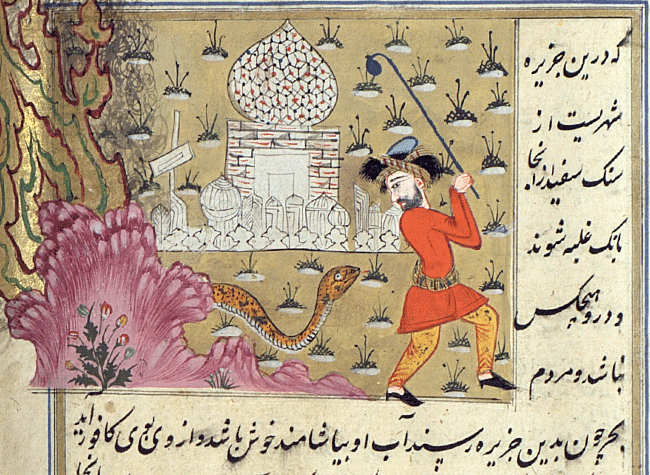 که درین جزیره
شهریست از
سنگ سفید ازانجا
بانک غلبه شنوند
و درو هیچکس
نباشد و مردم
بحر چون بدین جزیره رسند آب او بیاشامند خوش باشد و از وی بوی کافور آید